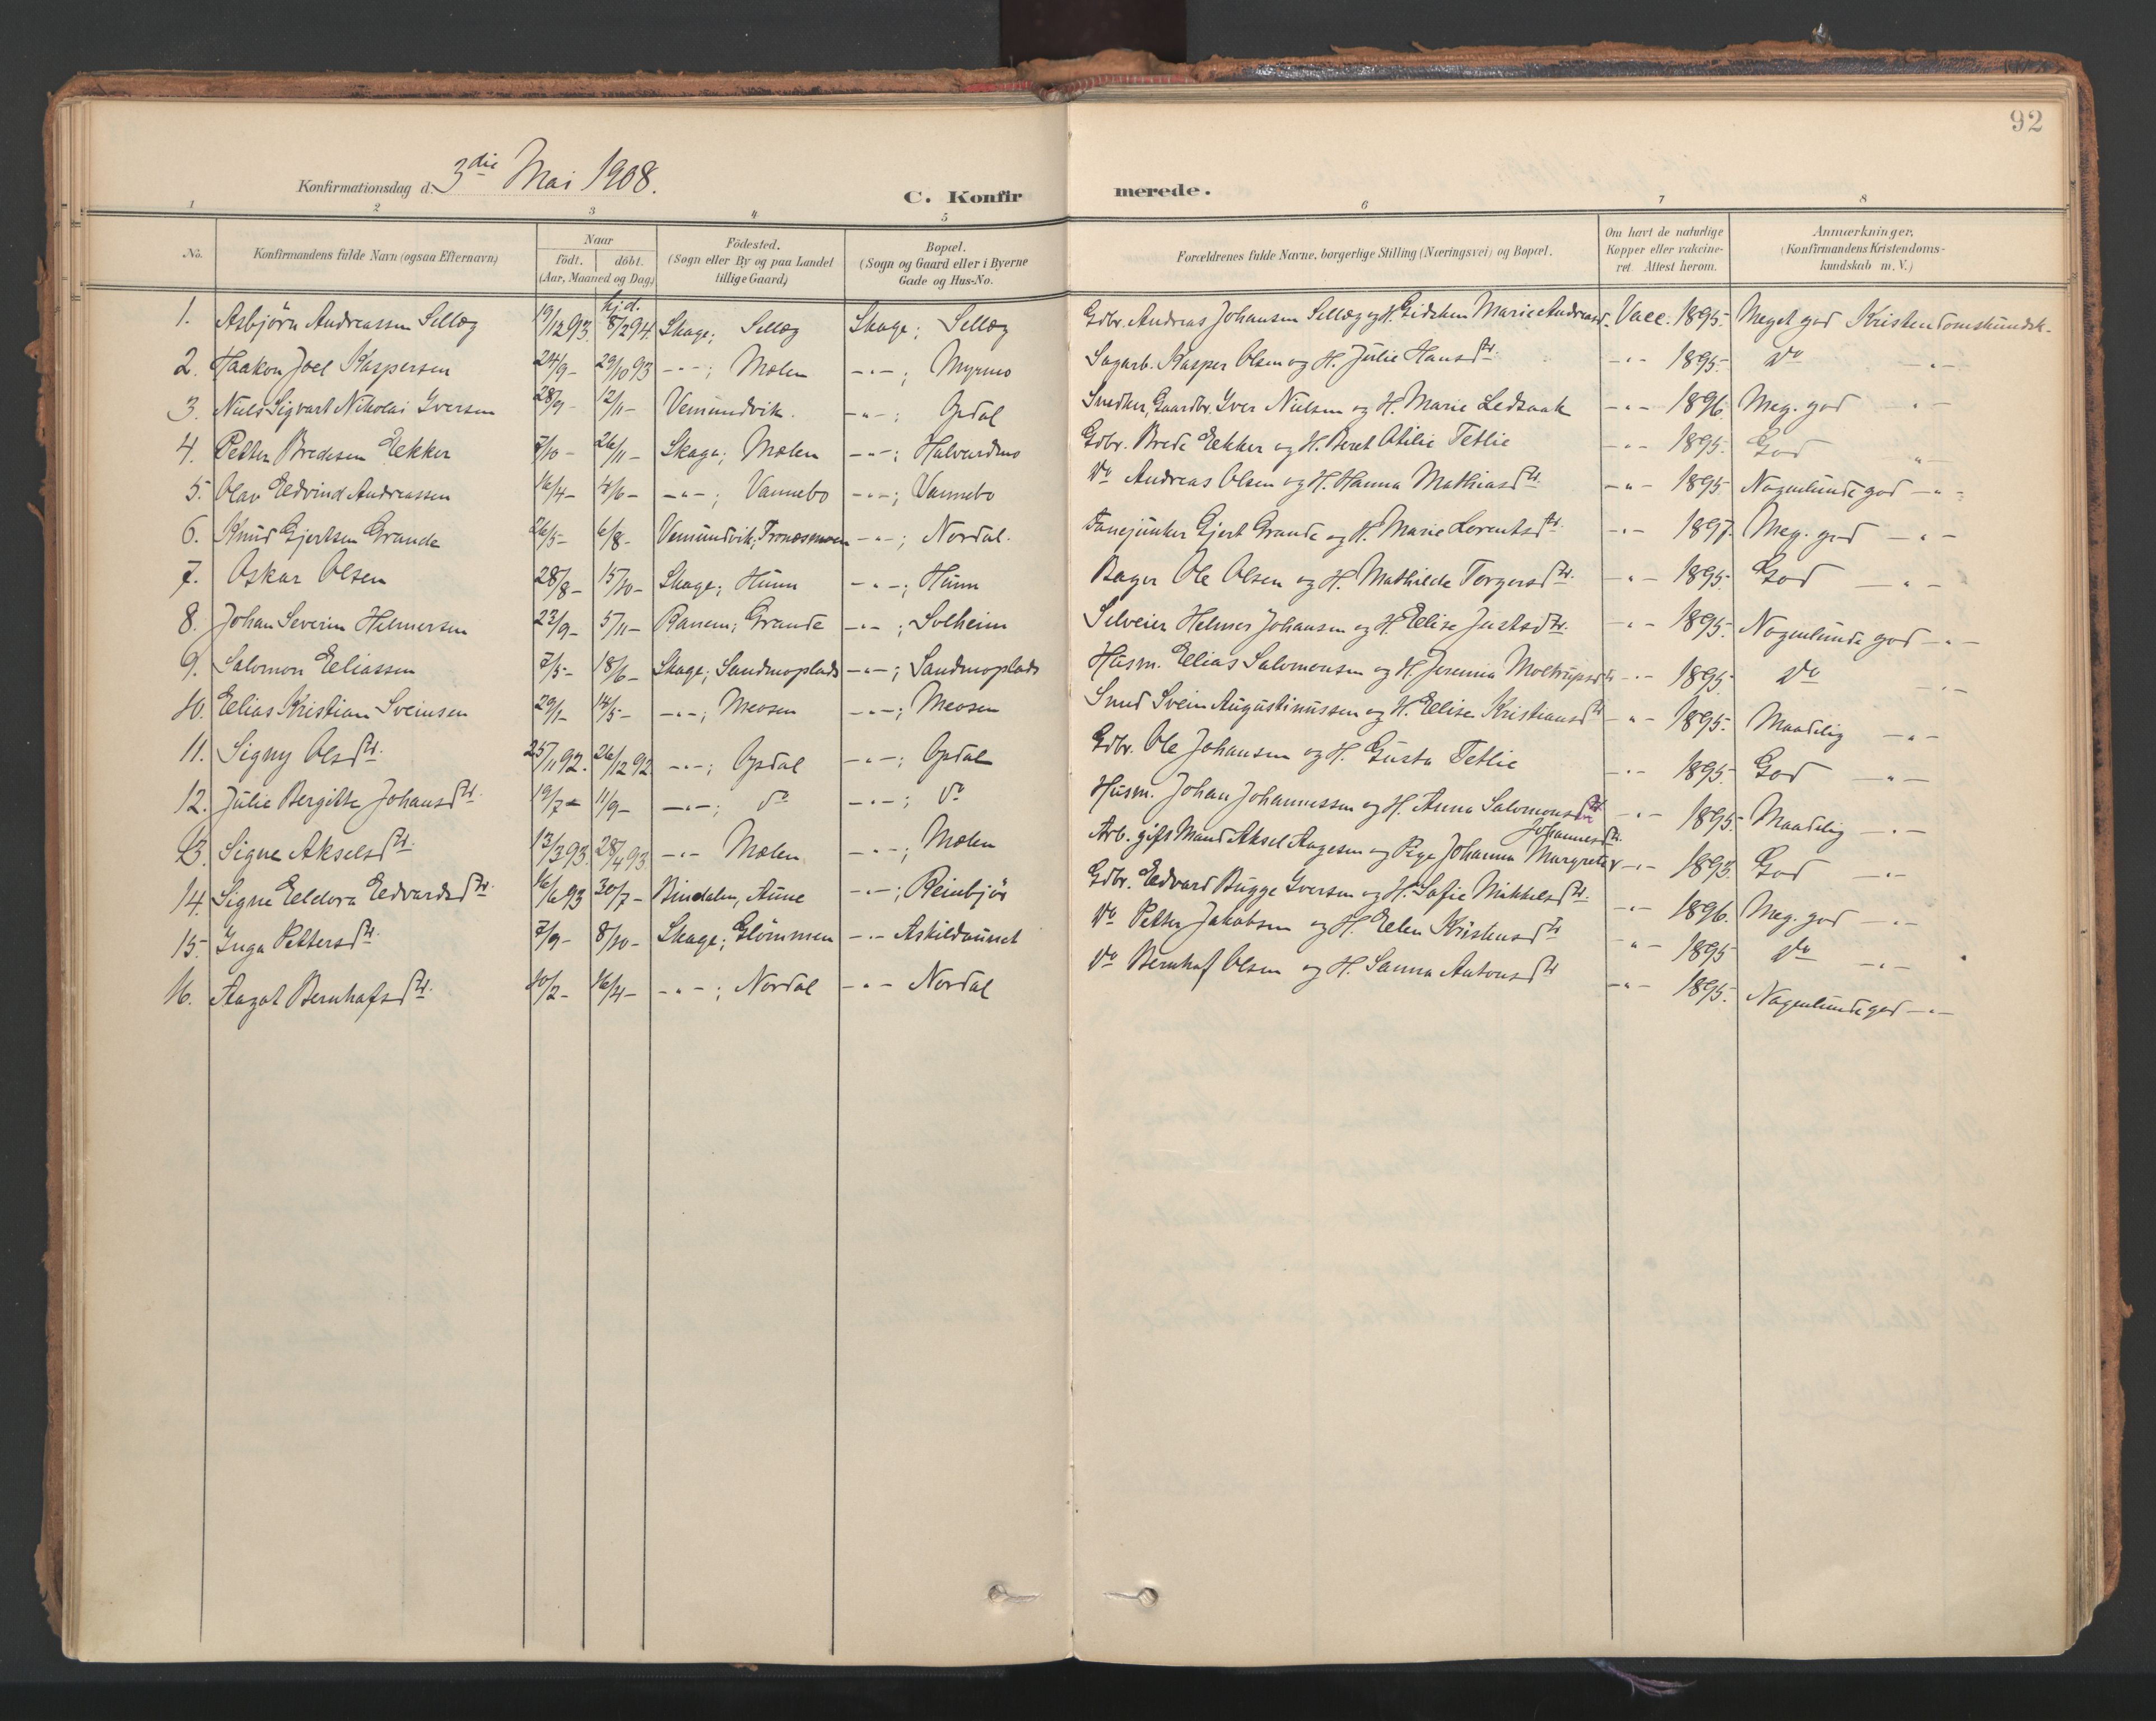 92
Konfirmationsdag d. 3die Mai 1908.
C. Konfirmerede.
1 2 3 4 5 6 7 8
No. Konfirmandens fulde Navn (ogsaa Efternavn) Naar födt. döbt. (Aar, Maaned og Dag) Födested. (Sogn eller By og paa Landet tillige Gaard) Bopæl. (Sogn og Gaard eller i Byerne Gade og Hus-No. Forældrenes fulde Navne, borgerlige Stilling (Næringsvei) og Bopæl. Om havt de naturlige Kopper eller vakcineret. Attest herom. Anmærkninger. (Konfirmandens Kristendomskundskab m. V.)
1. Asbjörn Andreassen Sellæg 19/12 93. hj.d. 8/2 94. Skage; Sellæg Skage; Sellæg Gdbr. Andreas Johansen Sellæg og H. Marie Andreasd. Vacc. 1895. Meget god Kristendomskundsk.
2. Haakon Joel Kaspersen 24/9 - 29/10 93 -"-; Mælen -"-; Myrmo Sagarb. Kasper Olsen og H. Julie Hansdtr. -"- 1895. Do -"-
3. Niels Sigvart Nikolai Iversen 28/9 - 12/11 - Vemundvik. -"-; Opdal Snedker, Gaardbr. Iver Nielsen og H. Marie Ledsaak -"- 1896 Meg. god -"-
4. Petter Bredesen Eekker 7/10 - 26/11 - Skage; Mælen -"-; Halvardmo Gdbr. Brede Eekker og H. Beret Otilie Tetlie -"- 1895. God -"-
5. Olav Edvind Andreassen 16/4 - 4/6 - -"-; Vannebo -"-; Vannebo Do Andreas Olsen og H. Hanna Mathiasdtr. -"- 1895 Nogenlunde god -"-
6. Knud Gjertsen Grande 26/5 - 6/8 - Vemundvik; Tronæsmoen -"-; Nordal. Fanejunker Gjert Grande og H. Marie Lorentsdtr. -"- 1897. Meg. god -"-
7. Oskar Olsen 28/8 - 15/10 - Skage; Hunn -"-; Hunn Bager Ole Olsen og H. Mathilde Torgersdtr. -"- 1895. God -"-
8. Johan Severin Helmersen 22/9 - 5/11 - Ranem; Grande -"-; Solheim Selveier Helmer Johansen og H. Elise Justsdtr. -"- 1895. Nogenlunde god -"-
9. Salomon Eliassen 7/5 - 18/6 - Skage; Sandmoplads -"-; Sandmoplads Husm. Elias Salomonsen og H. Jeremia Moltrupsdtr -"- 1895. Do -"-
10. Elias Kristian Sveinsen 29/1 - 14/5 - -"-; Meosen -"-; Meosen Smed Svein Augustinussen og H. Elise Kristiansdtr -"- 1895. Maadelig -"-
11. Signy Olsdtr. 25/11 92. 26/12 92 -"-; Opdal -"-; Opdal Gdbr. Ole Johansen og H. Gusta Tetlie -"- 1895. God -"-
12. Julie Bergitte Johansdtr. 19/7 - 11/9 - -"-; do -"-; do Husm. Johan Johannessen og H. Anna Salomonsdtr -"- 1895. Maadelig -"-
13. Signe Akselsdtr. 13/3 93. 28/4 93 -"- Mælen -"-; Mælen Arb. gift Mand Aksel Aagesen og Pige Johanna Margrete Johannesdtr. -"- 1893. God -"-
14. Signe Eldora Edvardsdtr. 16/6 93 30/7 - Bindalen, Aune -"-; Reinbjör Gdbr. Edvard Bugge Iversen og H. Sofie Mikkelsdtr. -"- 1896. Meg. god -"-
15. Inga Pettersdtr. 7/9 - 8/10 - Skage; Glömmen -"- Askildaunet Do Petter Jakobsen og H. Elen Kristensdtr -"- 1895 Do -"-
16. Aagot Bernhofsdtr. 10/2 - 16/4 - -"-; Nordal -"- Nordal Do Bernhof Olsen og H. Sanna Antonsdtr -"- 1895. Nogenlunde god -"-